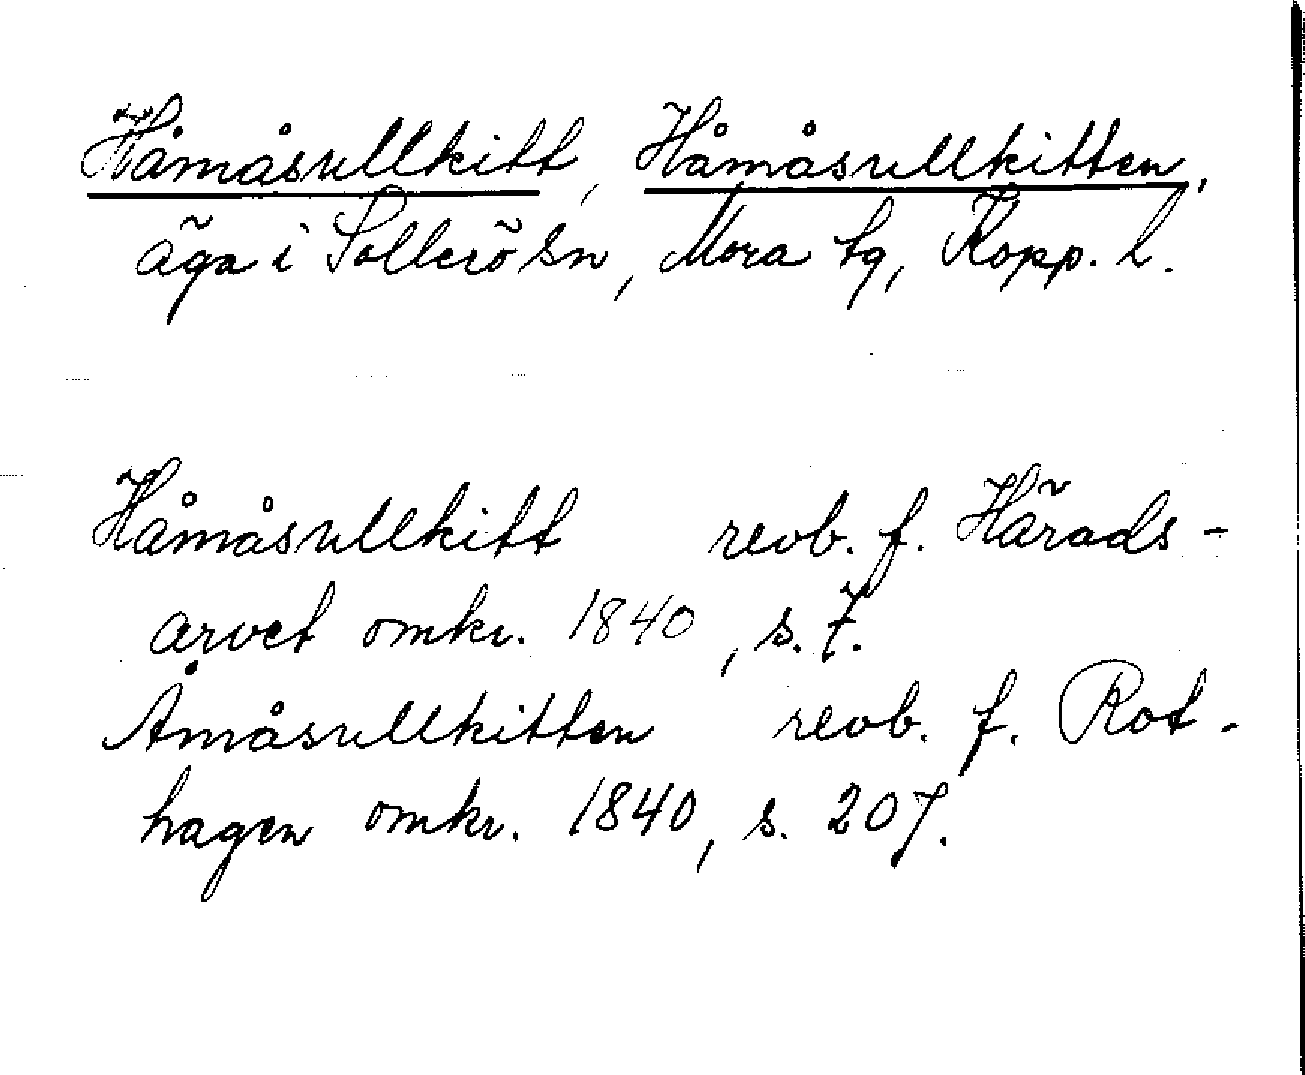 Håmåsullkitt, Håmåsullkitten,
äga i Sollerö sn, Mora tg, Kopp. l.
Håmåsullkitt revb. f. Härads-
arvet omkr. 1840, s. 7.
Åmåsullkitten revb. f. Rot-
hagen omkr. 1840, s. 207.